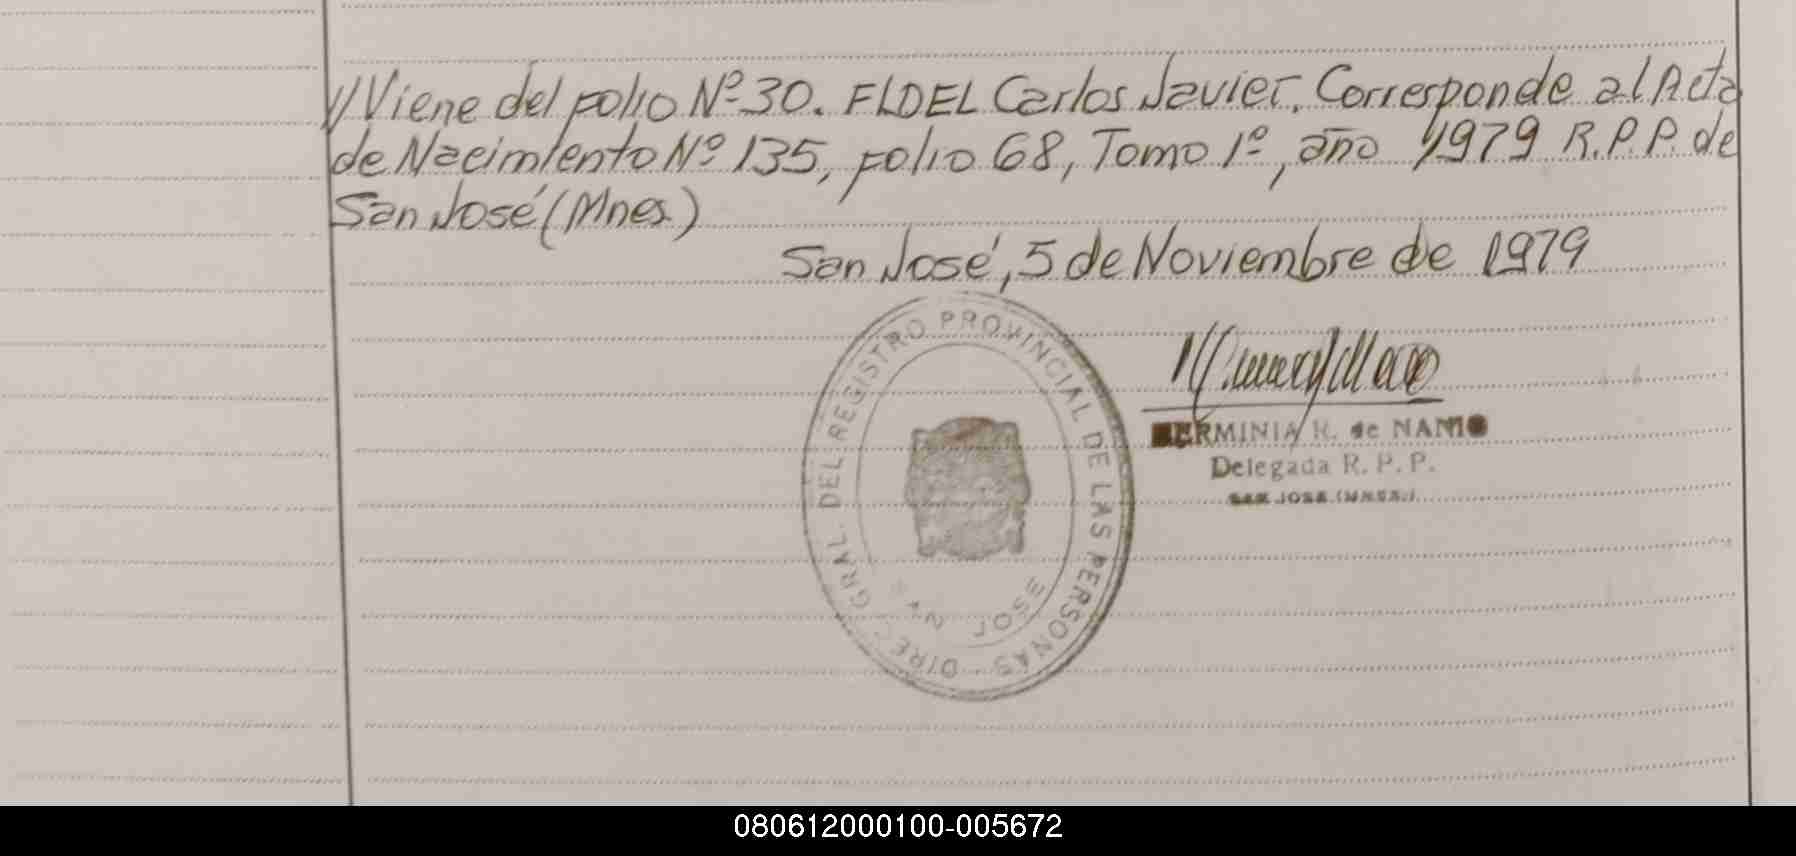 //Viene del folio Nº 30. FIDEL Carlos Javier. Corresponde al Acta
de Nacimiento Nº 135, folio 68, Tomo 1º, año 1979 R.P.P. de
San José (Mnes.)
San José, 5 de Noviembre de 1979
DIREC. GRAL. DEL REGISTRO PROVINCIAL DE LAS PERSONAS
SAN JOSE
HERMINIA R. de
Delegada R. P. P.
SAN JOSE (MNES.)
080612000100-005672